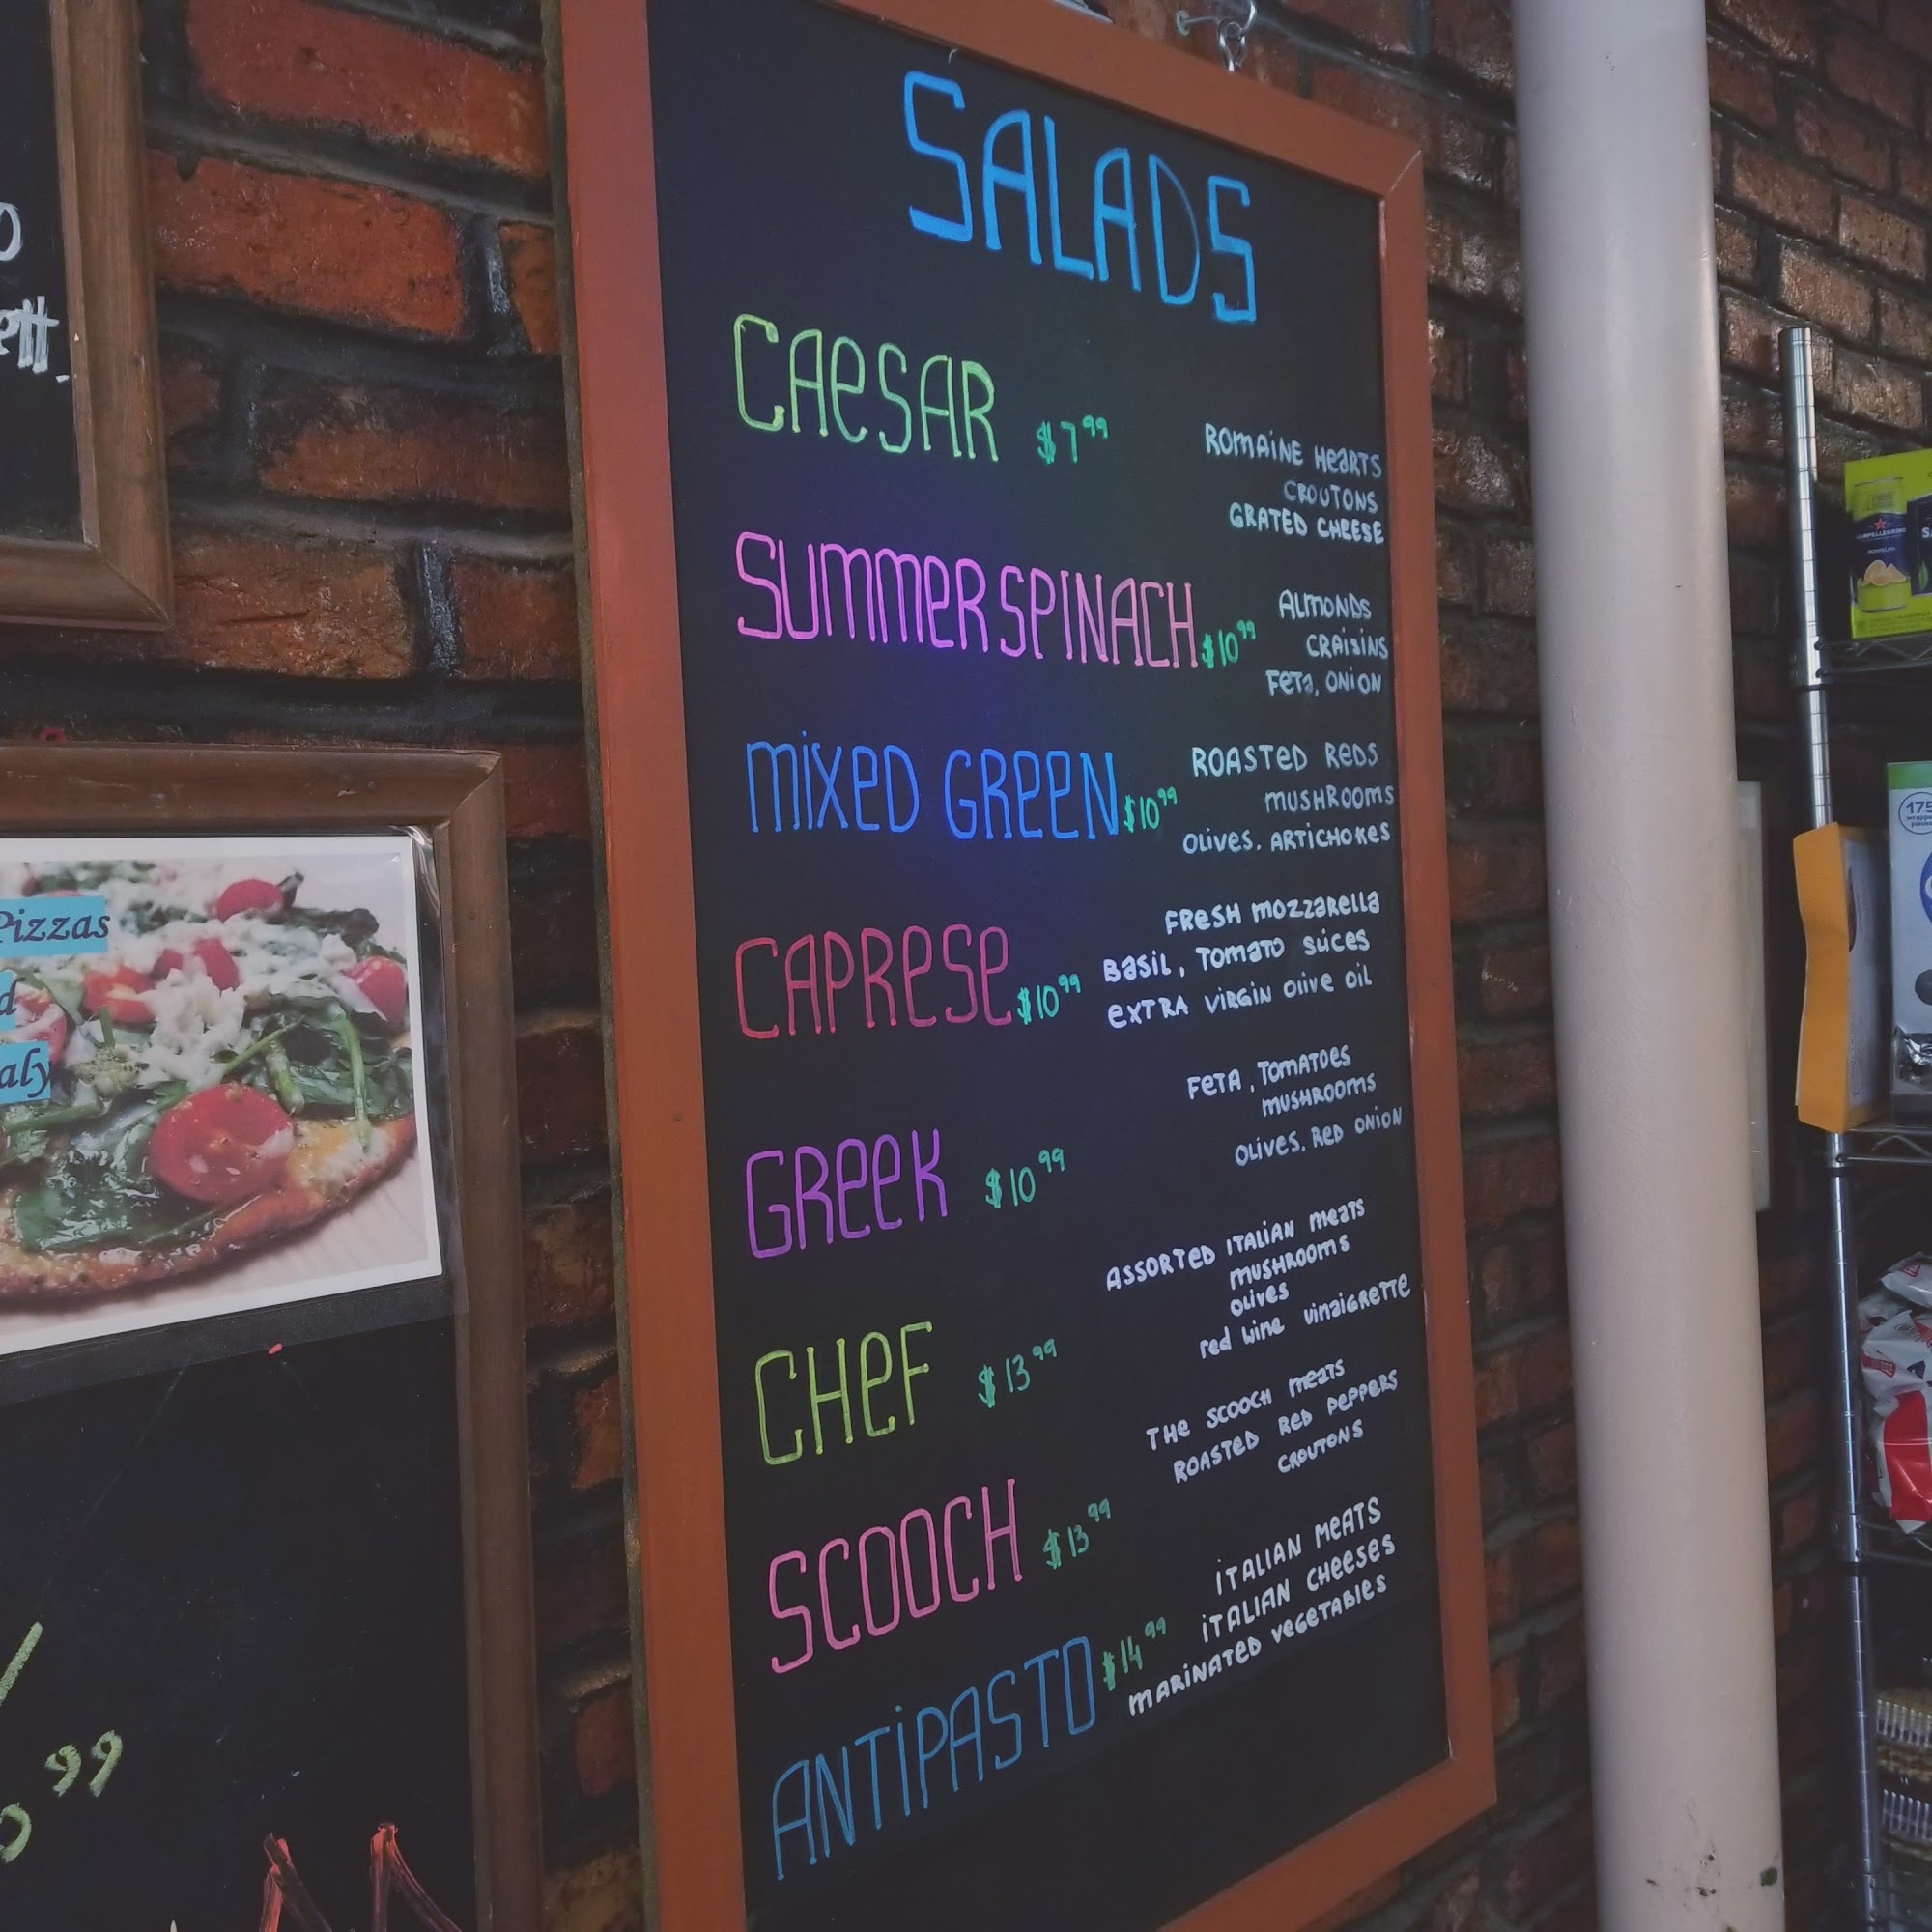 SALADS
CAESAR $7.99
ROMAINE HEARTS
CROUTONS
GRATED CHEESE
SUMMER SPINACH $10.99
ALMONDS
CRAISINS
FETA, ONION
MIXED GREEN $10.99
ROASTED REDS
MUSHROOMS
OLIVES. ARTICHOKES
CAPRESE $10.99
FRESH MOZZARELLA
BASIL, TOMATO SLICES
EXTRA VIRGIN OLIVE OIL
GREEK $10.99
FETA, TOMATOES
MUSHROOMS
OLIVES, RED ONION
CHEF $13.99
ASSORTED ITALIAN MEATS
MUSHROOMS
OLIVES
red wine vinaigrette
SCOOCH $13.99
THE SCOOCH MEATS
ROASTED RED PEPPERS
CROUTONS
ANTIPASTO $14.99
ITALIAN MEATS
ITALIAN CHEESES
MARINATED VEGETABLES
ett.
Pizzas
d
aly
99
SANPELLEGRINO
175